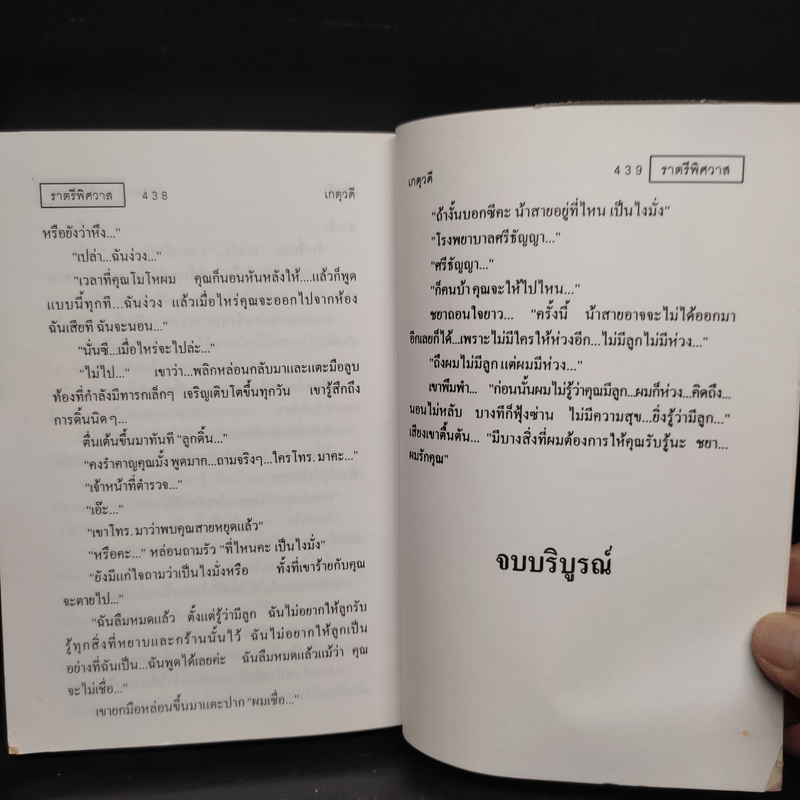 ราตรีพิศวาส 438 เกตุวดี
หรือยังว่าหึง..."
"เปล่า...ฉันง่วง..."
"เวลาที่คุณโมโหผม คุณก็นอนหันหลังให้....แล้วก็พูด
แบบนี้ทุกที...ฉันง่วง แล้วเมื่อไหร่คุณจะออกไปจากห้อง
ฉันเสียที ฉันจะนอน..."
"นั่นซี...เมื่อไหร่จะไปล่ะ..."
"ไม่ไป..." เขาว่า...พลิกหล่อนกลับมาและแตะมือลูบ
ท้องที่กำลังมีทารกเล็กๆ เจริญเติบโตขึ้นทุกวัน เขารู้สึกถึง
การดิ้นนิดๆ...
ตื่นเต้นขึ้นมาทันที "ลูกดิ้น..."
"คงรำคาญคุณมั้ง พูดมาก...ถามจริงๆ...ใครโทร. มาคะ..."
"เจ้าหน้าที่ตำรวจ..."
"เอ๊ะ..."
"เขาโทร. มาว่าพบคุณสายหยุดแล้ว"
"หรือคะ..." หล่อนถามรัว "ที่ไหนคะ เป็นไงมั่ง"
"ยังมีแก่ใจถามว่าเป็นไงมั่งหรือ ทั้งที่เขาร้ายกับคุณ
จะตายไป..."
"ฉันลืมหมดแล้ว ตั้งแต่รู้ว่ามีลูก ฉันไม่อยากให้ลูกรับ
รู้ทุกสิ่งที่หยาบและกร้านนั้นไว้ ฉันไม่อยากให้ลูกเป็น
อย่างที่ฉันเป็น...ฉันพูดได้เลยค่ะ ฉันลืมหมดแล้วแม้ว่า คุณ
จะไม่เชื่อ..."
เขายกมือหล่อนขึ้นมาแตะปาก "ผมเชื่อ..."
เกตุวดี 439 ราตรีพิศวาส
"ถ้างั้นบอกซีคะ น้าสายอยู่ที่ไหน เป็นไงมั่ง"
"โรงพยาบาลศรีธัญญา..."
"ศรีธัญญา..."
"ก็คนบ้า คุณจะให้ไปไหน..."
ชยาถอนใจยาว... "ครั้งนี้ น้าสายอาจจะไม่ได้ออกมา
อีกเลยก็ได้...เพราะไม่มีใครให้ห่วงอีก...ไม่มีลูกไม่มีห่วง..."
"ถึงผมไม่มีลูก แต่ผมมีห่วง..."
เขาพึมพำ... "ก่อนนั้นผมไม่รู้ว่าคุณมีลูก...ผมก็ห่วง...คิดถึง...
นอนไม่หลับ บางทีก็ฟุ้งซ่าน ไม่มีความสุข...ยิ่งรู้ว่ามีลูก..."
เสียงเขาตื้นตัน... "มีบางสิ่งที่ผมต้องการให้คุณรับรู้นะ ชยา...
ผมรักคุณ"
จบบริบูรณ์